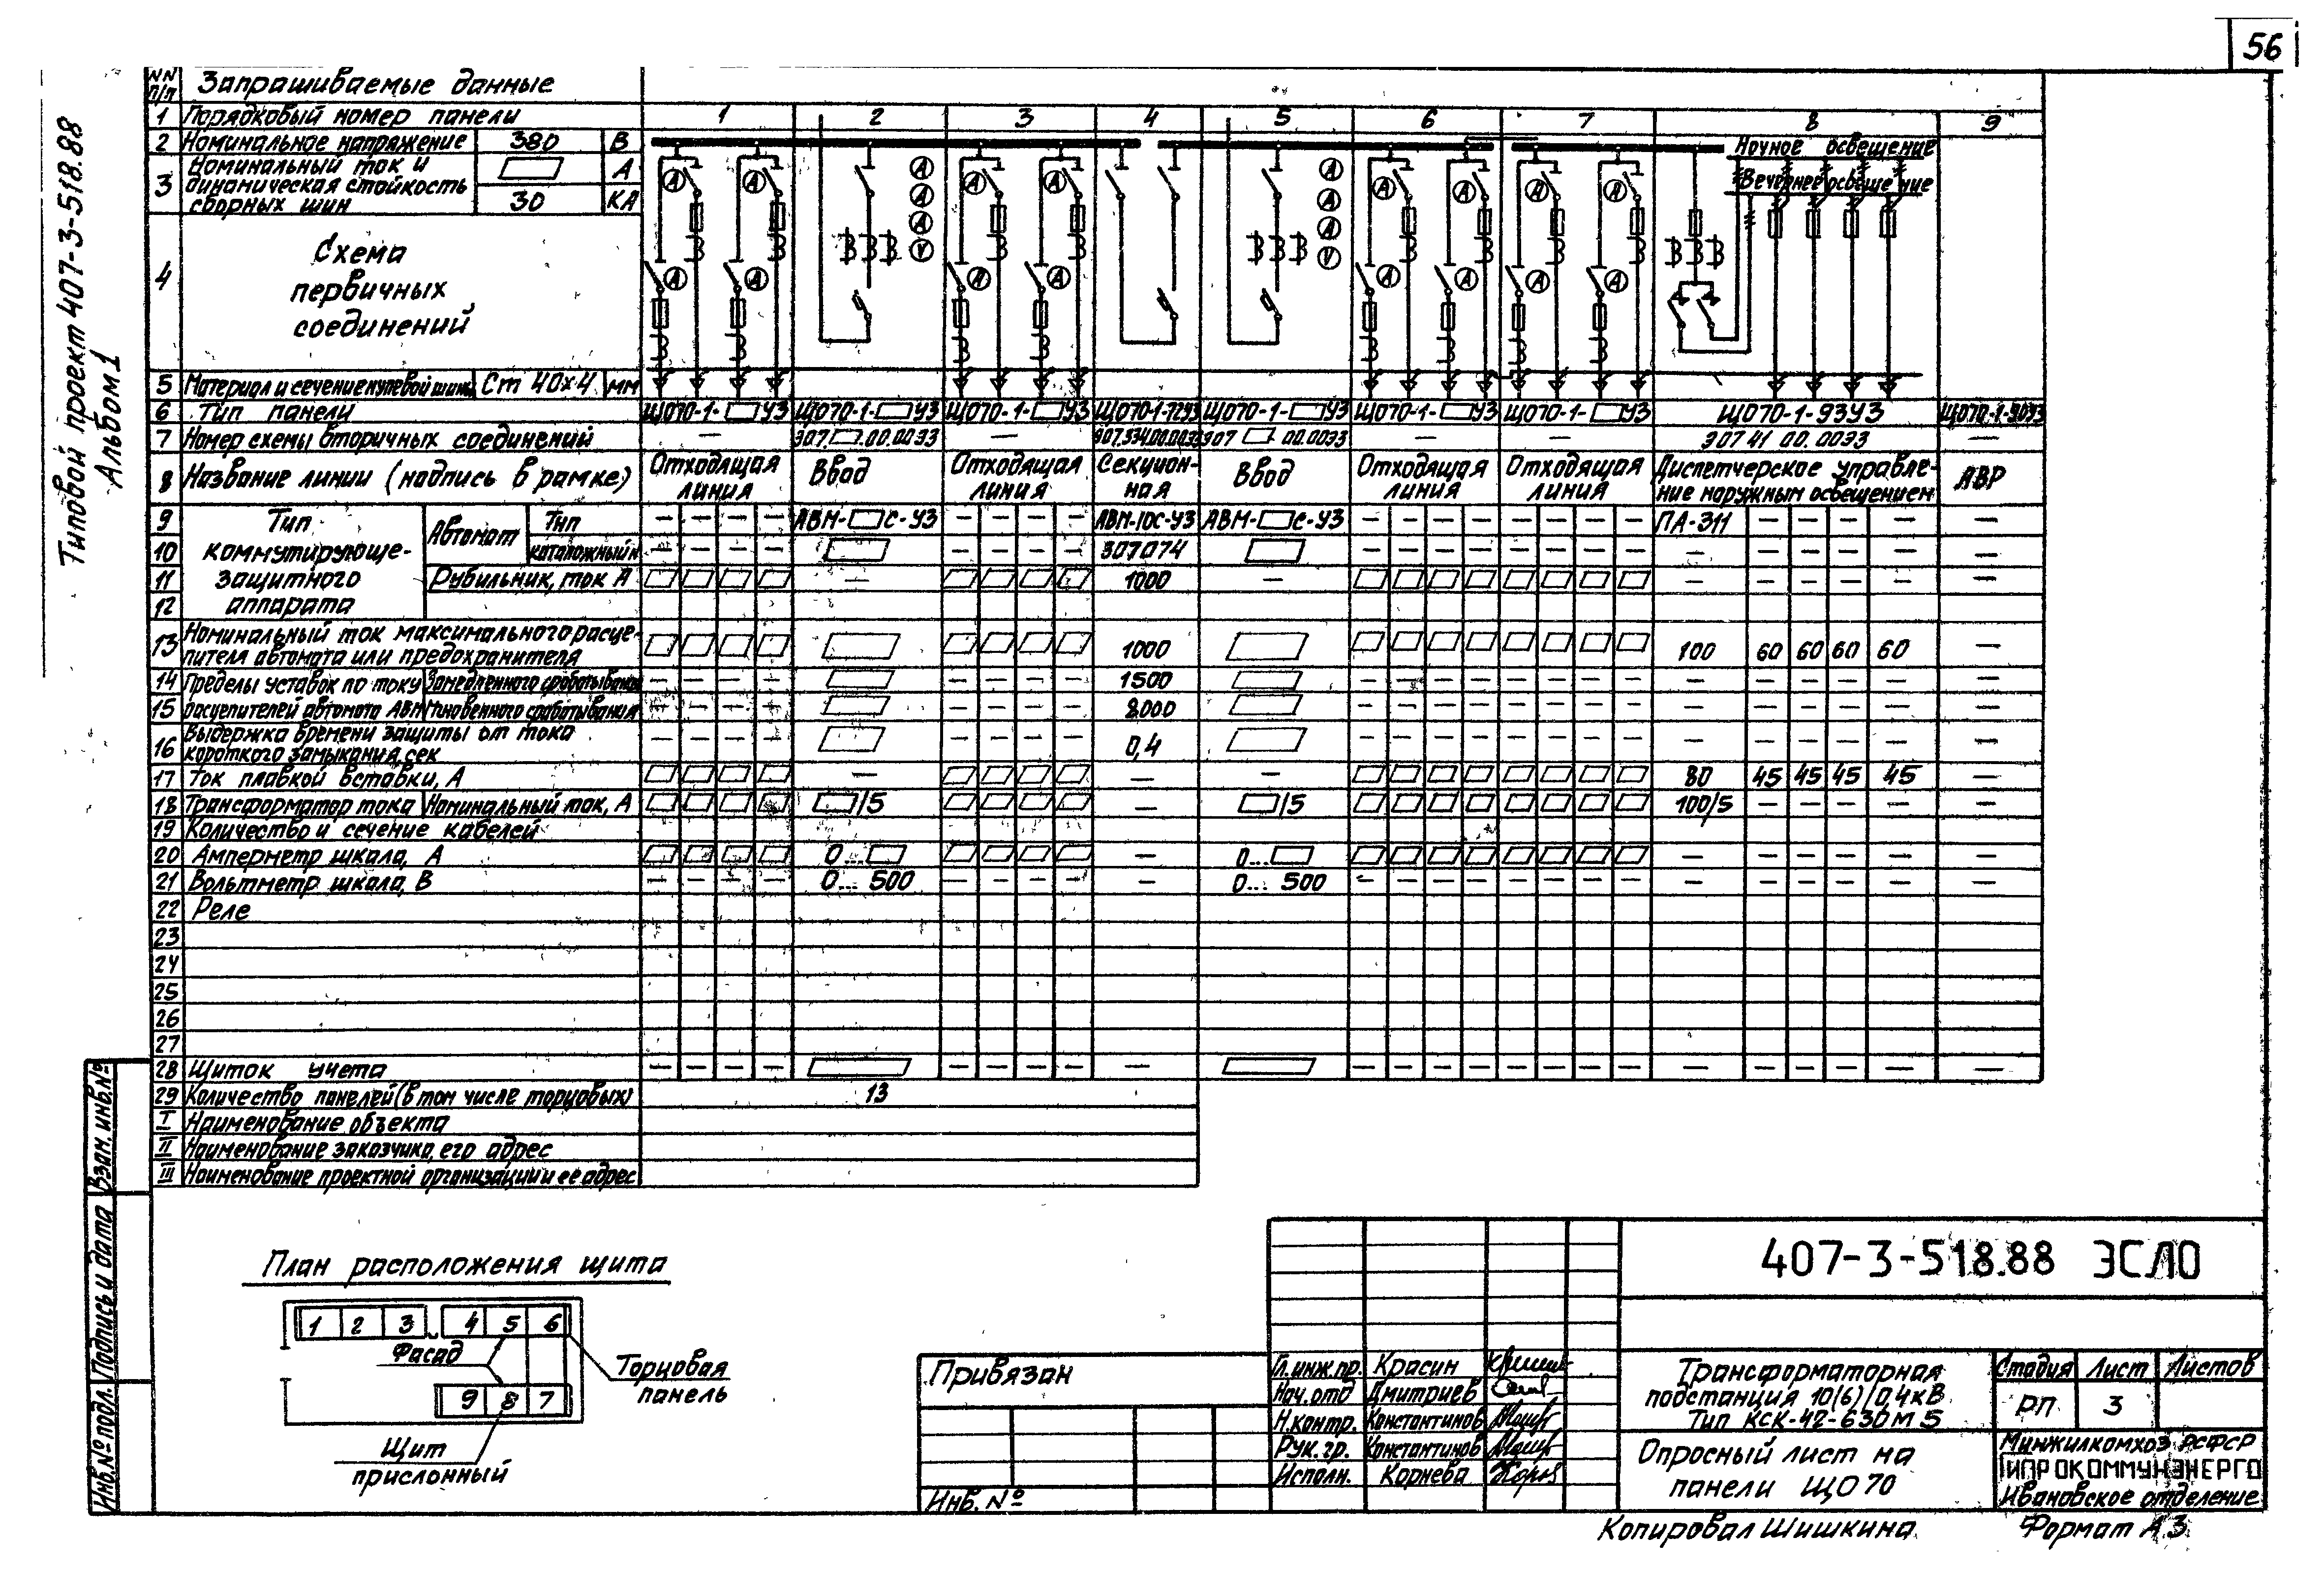 56
Типовой проект 407-3-518.88
Альбом 1
NN п/п Запрашиваемые данные
1 Порядковый номер панели 1 2 3 4 5 6 7 8 9
2 Номинальное напряжение 380 В
3 Номинальный ток и динамическая стойкость сборных шин А
30 КА
Ночное освещение
Вечернее освещение
4 Схема первичных соединений
5 Материал и сечение нулевой шины Ст 40×4 мм
6 Тип панели ЩО70-1- У3 ЩО70-1- У3 ЩО70-1- У3 ЩО70-1-72У3 ЩО70-1- У3 ЩО70-1- У3 ЩО70-1- У3 ЩО70-1-93У3 ЩО70-1-90У3
7 Номер схемы вторичных соединений — Э07. .00.00ЭЗ — Э07.534.00.00ЭЗ Э07 .00.00ЭЗ — — Э07 41 00.00ЭЗ —
8 Название линии (надпись в рамке) Отходящая линия Ввод Отходящая линия Секционная Ввод Отходящая линия Отходящая линия Диспетчерское управление наружным освещением АВР
Тип коммутирующе-защитного аппарата
9 Автомат Тип — — — — АВМ- С-У3 — — — — АВМ-10С-У3 АВМ- С-У3 — — — — — — — — ПА-311 — — — — —
10 каталожный н — — — — — — — — 307074 — — — — — — — — — — — — — —
11 Рубильник, ток А — 1000 — — — — — — —
12
13 Номинальный ток максимального расцепителя автомата или предохранителя 1000 100 60 60 60 60 —
14 Пределы уставок по току Замедленного срабатывания — — — — — — — — 1500 — — — — — — — — — — — — — —
15 расцепителей автомата АВМ Мгновенного срабатывания — — — — — — — — 8000 — — — — — — — — — — — — — —
16 Выдержка времени защиты от тока короткого замыкания, сек — — — — — — — — 0,4 — — — — — — — — — — — — — —
17 Ток плавкой вставки, А — — — 80 45 45 45 45 —
18 Трансформатор тока Номинальный ток, А /5 — /5 100/5 — — — — —
19 Количество и сечение кабелей
20 Амперметр шкала, А 0... — 0... — — — — — —
21 Вольтметр шкала, В — — — — 0... 500 — — — — — 0... 500 — — — — — — — — — — — — — —
22 Реле
23
24
25
26
27
28 Щиток учета — — — — — — — — — — — — — — — — — — — — — — —
29 Количество панелей (в том числе торцовых) 13
I Наименование объекта
II Наименование заказчика, его адрес
III Наименование проектной организации и ее адрес
Взам. инв.№
Подпись и дата
Инв.№ подл.
План расположения щита
1 2 3 4 5 6
Фасад
9 8 7
Торцовая панель
Щит прислонный
Привязан
Инв. №
407-3-518.88 ЭСЛО
Гл.инж.пр. Красин
Нач.отд Дмитриев
Н.контр. Константинов
Рук. гр. Константинов
Исполн. Корнева
Трансформаторная подстанция 10(6)/0,4кВ Тип КСК-42-630М5
Стадия Лист Листов
РП 3
Опросный лист на панели ЩО70
Минжилкомхоз РСФСР
ГИПРОКОММУНЭНЕРГО
Ивановское отделение
Копировал Шишкина Формат А3